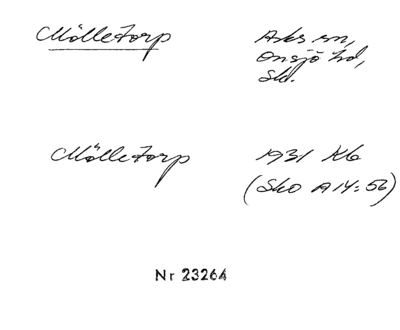 Mölletorp
Asks sn,
Onsjö hd,
Skå.
Mölletorp
1931 Kb
(Sko A 14:56)
Nr 23264